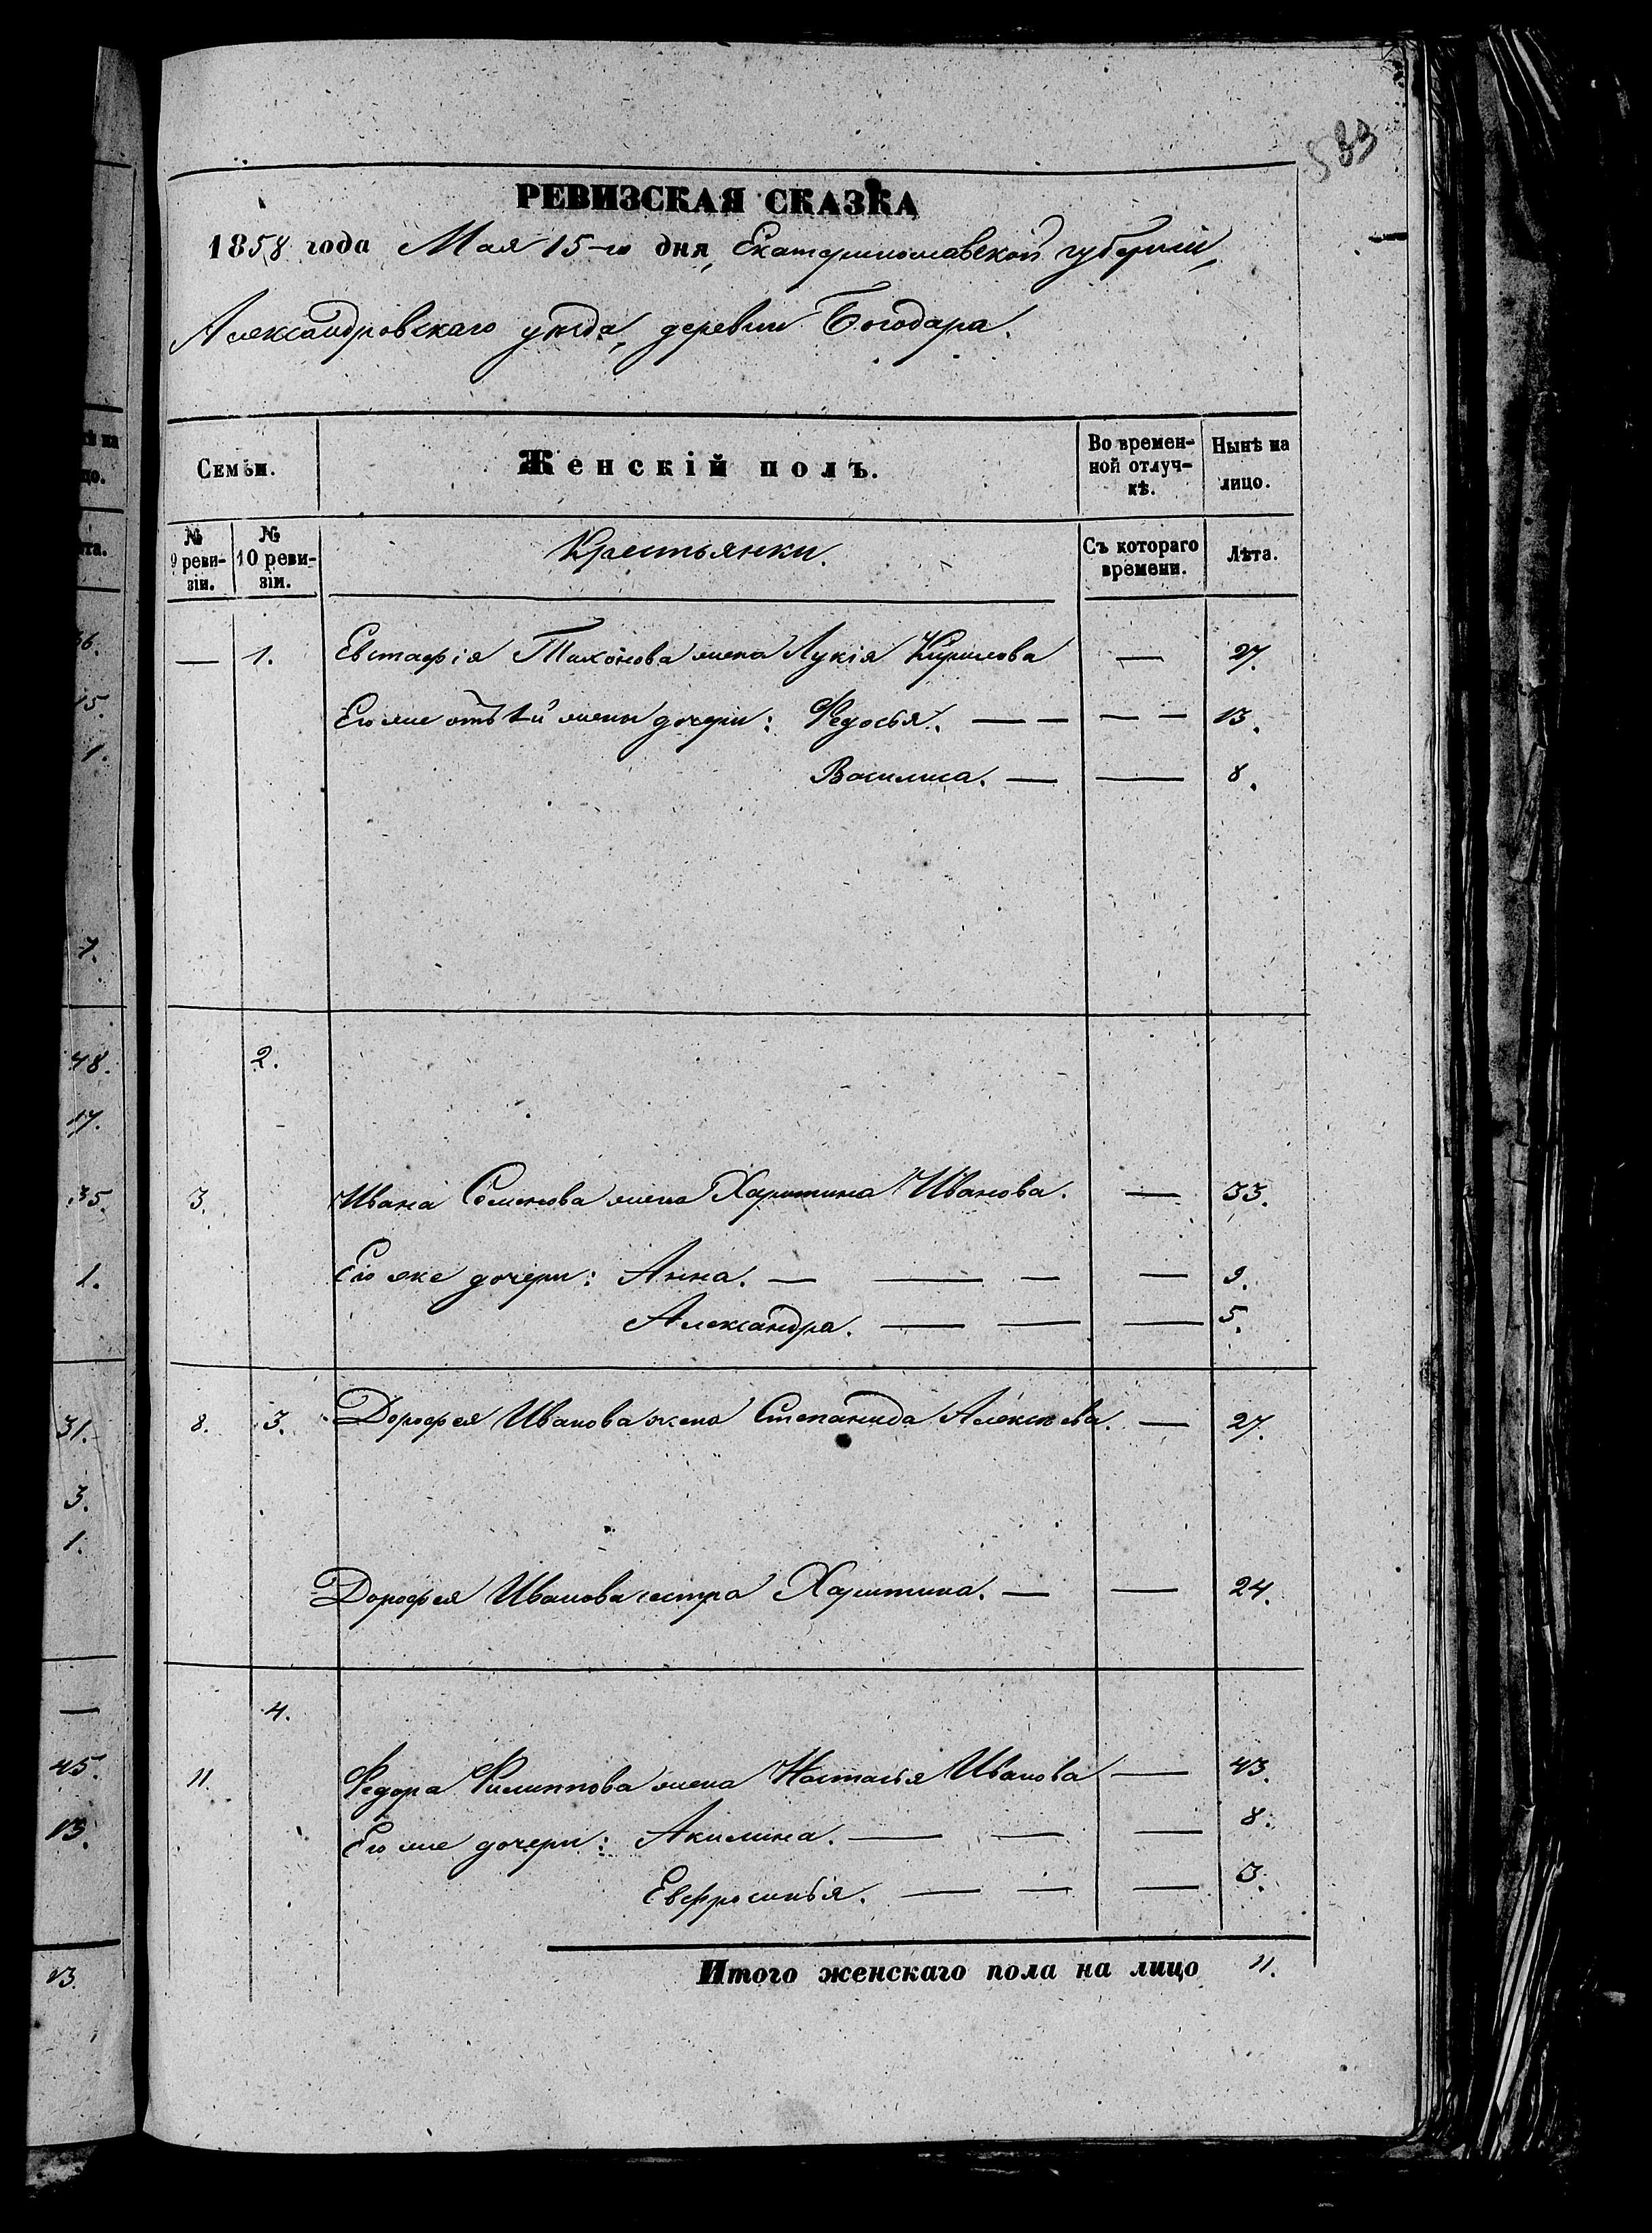 583
РЕВИЗСКАЯ СКАЗКА
1858 года Мая 15-го дня, Екатеринославской губерніи,
Александровскаго уѣзда, деревни Богодара.
Семьи.
Женскій полъ.
Во времен-
ной отлуч-
кѣ.
Нынѣ на
лицо.
№
9 реви-
зіи.
№
10 реви-
зіи.
Крестьянки.
Съ котораго
времени.
Лѣта.
— 1. Евстафія Тихонова жена Лукія Кирилова — 27.
Его же отъ 1-й жены дочери: Федосья. — — — — 13.
Василиса. — — 8.
2.
3. Ивана Семенова жена Харитина Иванова. — 33.
Его же дочери: Анна. — — — — 9.
Александра. — — — 5.
8. 3. Дорофея Иванова жена Степанида Алексѣева. — 27.
Дорофея Иванова сестра Харитина. — — 24.
4.
11. Федора Филиппова жена Настасья Иванова — 43.
Его же дочери: Акилина. — — — 8.
Евфросинья. — — — 3.
Итого женскаго пола на лицо 11.
36.
15.
1.
7.
48.
17.
35.
1.
31.
3.
1.
—
45.
13.
13.